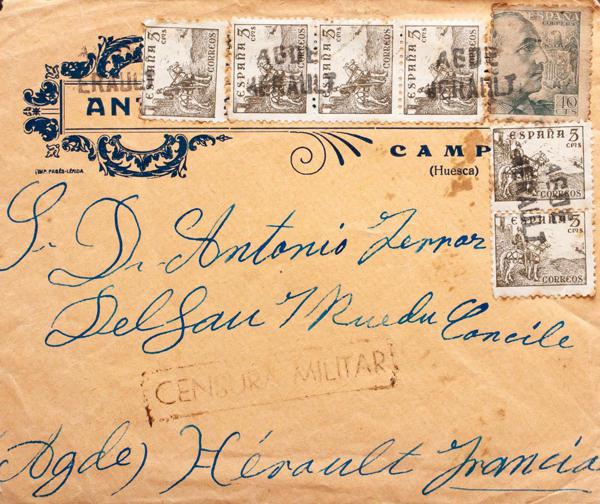 ESPAÑA 5 CTS CORREOS
ESPAÑA 5 CTS CORREOS
ESPAÑA 5 CTS CORREOS
ESPAÑA 5 CTS CORREOS
ESPAÑA
CORREOS
40
CTS
AGDE
HERAULT
AGDE
HERAULT
ERAULT
ANT
CAMP
(Huesca)
IMP. PAGÉS-LÉRIDA
ESPAÑA 5 CTS CORREOS
ESPAÑA 5 CTS CORREOS
S. D. Antonio Ferrar
Delsau 7 Rue du Concile
CENSURA MILITAR
(Agde) Hérault Francia